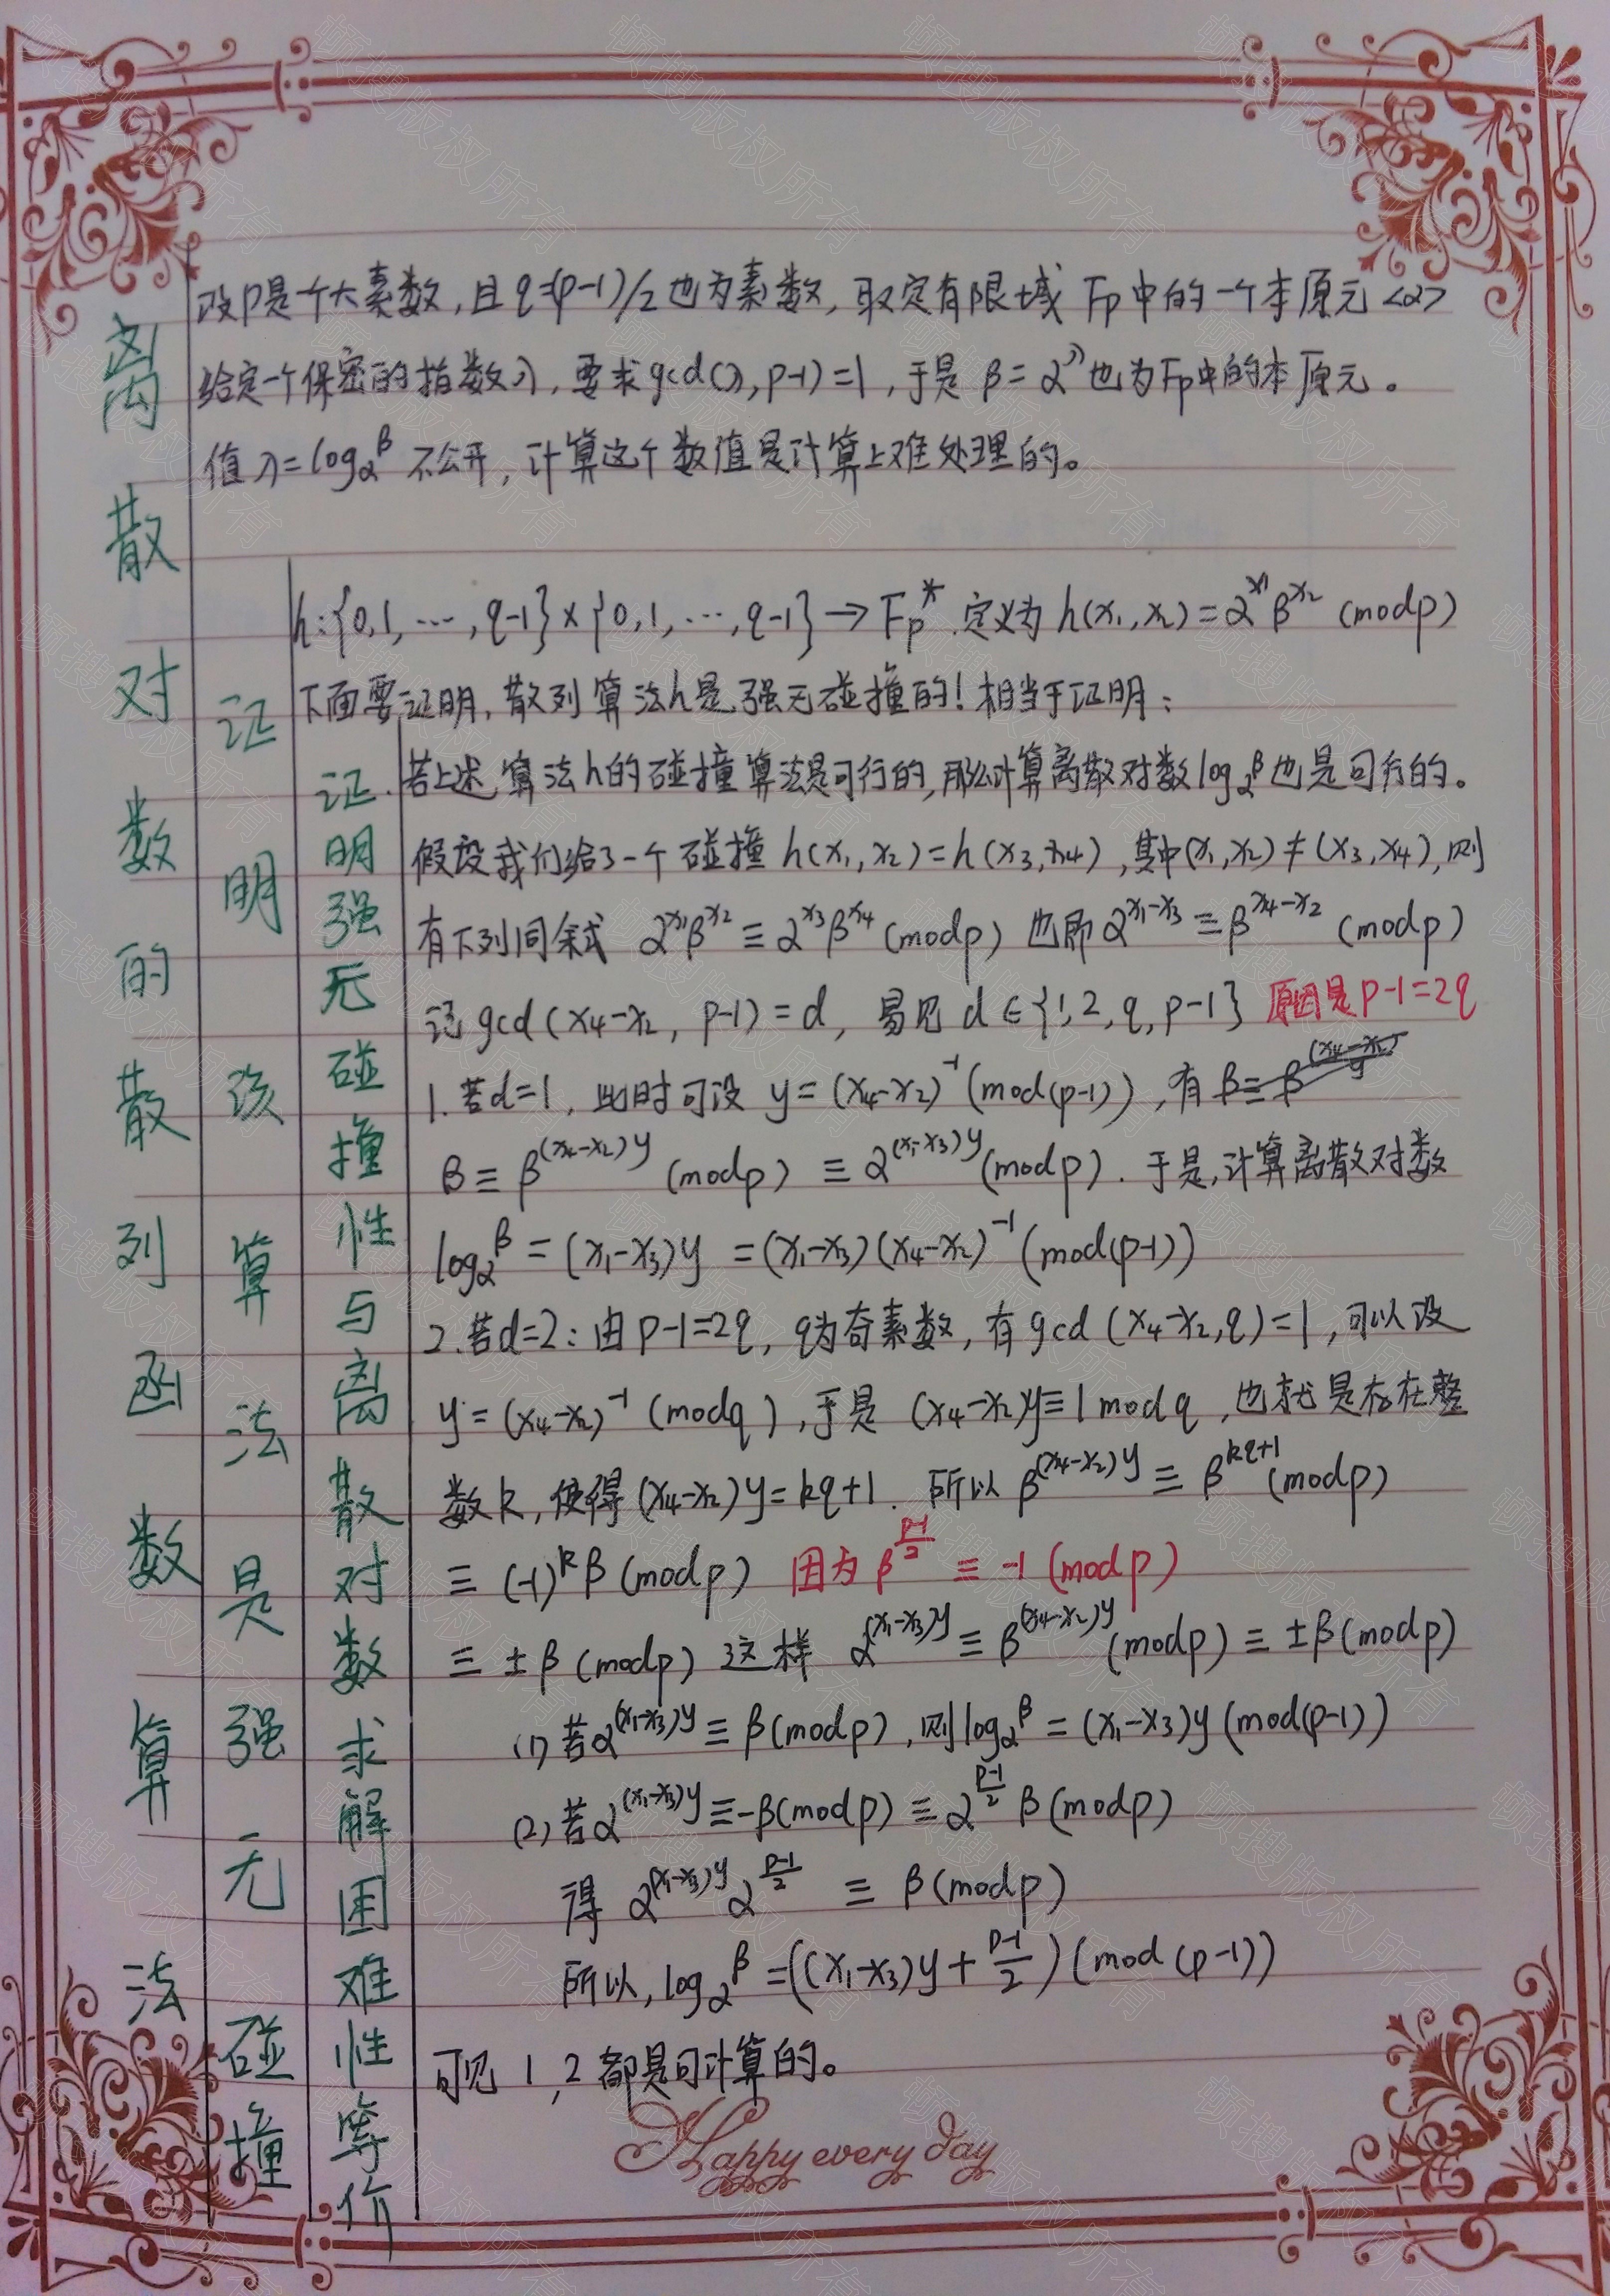 离散对数的散列函数算法
设p是一个大素数,且q=(p-1)/2也为素数,取定有限域 Fp中的一个本原元<α>
给定一个保密的指数λ,要求gcd(λ,p-1)=1,于是 β=α^λ也为Fp中的本原元。
值λ=logα^β 不公开,计算这个数值是计算上难处理的。
证明该算法是强无碰撞
h:{0,1,…,q-1}×{0,1,…,q-1}→Fp^*.定义为h(x₁,x₂)=α^x₁β^x₂ (modp)
下面要证明,散列算法h是强无碰撞的!相当于证明:
证明强无碰撞性与离散对数求解困难性等价
若上述算法h的碰撞算法是可行的,那么计算离散对数logα^β也是可行的。
假设我们给了一个碰撞h(x₁,x₂)=h(x₃,x₄),其中(x₁,x₂)≠(x₃,x₄),则
有下列同余式 α^x₁β^x₂≡α^x₃β^x₄(modp) 也即α^(x₁-x₃)≡β^(x₄-x₂) (modp)
记gcd(x₄-x₂, p-1)=d, 易见 d∈{1,2,q,p-1} 原因是p-1=2q
1.若d=1, 此时可设 y=(x₄-x₂)^-1(mod(p-1)),有β≡β^(x₄-x₂)y
β≡β^(x₄-x₂)y (modp) ≡α^(x₁-x₃)y(modp).于是,计算离散对数
logα^β=(x₁-x₃)y =(x₁-x₃)(x₄-x₂)^-1(mod(p-1))
2.若d=2:由p-1=2q, q为奇素数,有gcd(x₄-x₂,q)=1,可以设
y=(x₄-x₂)^-1 (modq),于是 (x₄-x₂)y≡1 modq ,也就是存在整
数k,使得(x₄-x₂)y=kq+1. 所以β^(x₄-x₂)y≡β^kq+1(modp)
≡(-1)^kβ(modp) 因为β^(p-1)/2≡-1(modp)
≡±β(modp) 这样 α^(x₁-x₃)y≡β^(x₄-x₂)y(modp)≡±β(modp)
(1)若α^(x₁-x₃)y≡β(modp),则logα^β=(x₁-x₃)y(mod(p-1))
(2)若α^(x₁-x₃)y≡-β(modp)≡α^(p-1)/2 β(modp)
得 α^(x₁-x₃)y α^(p-1)/2 ≡β(modp)
所以,logα^β=((x₁-x₃)y+(p-1)/2)(mod(p-1))
可见 1,2都是可计算的。
Happy every day
硕搜版权所有